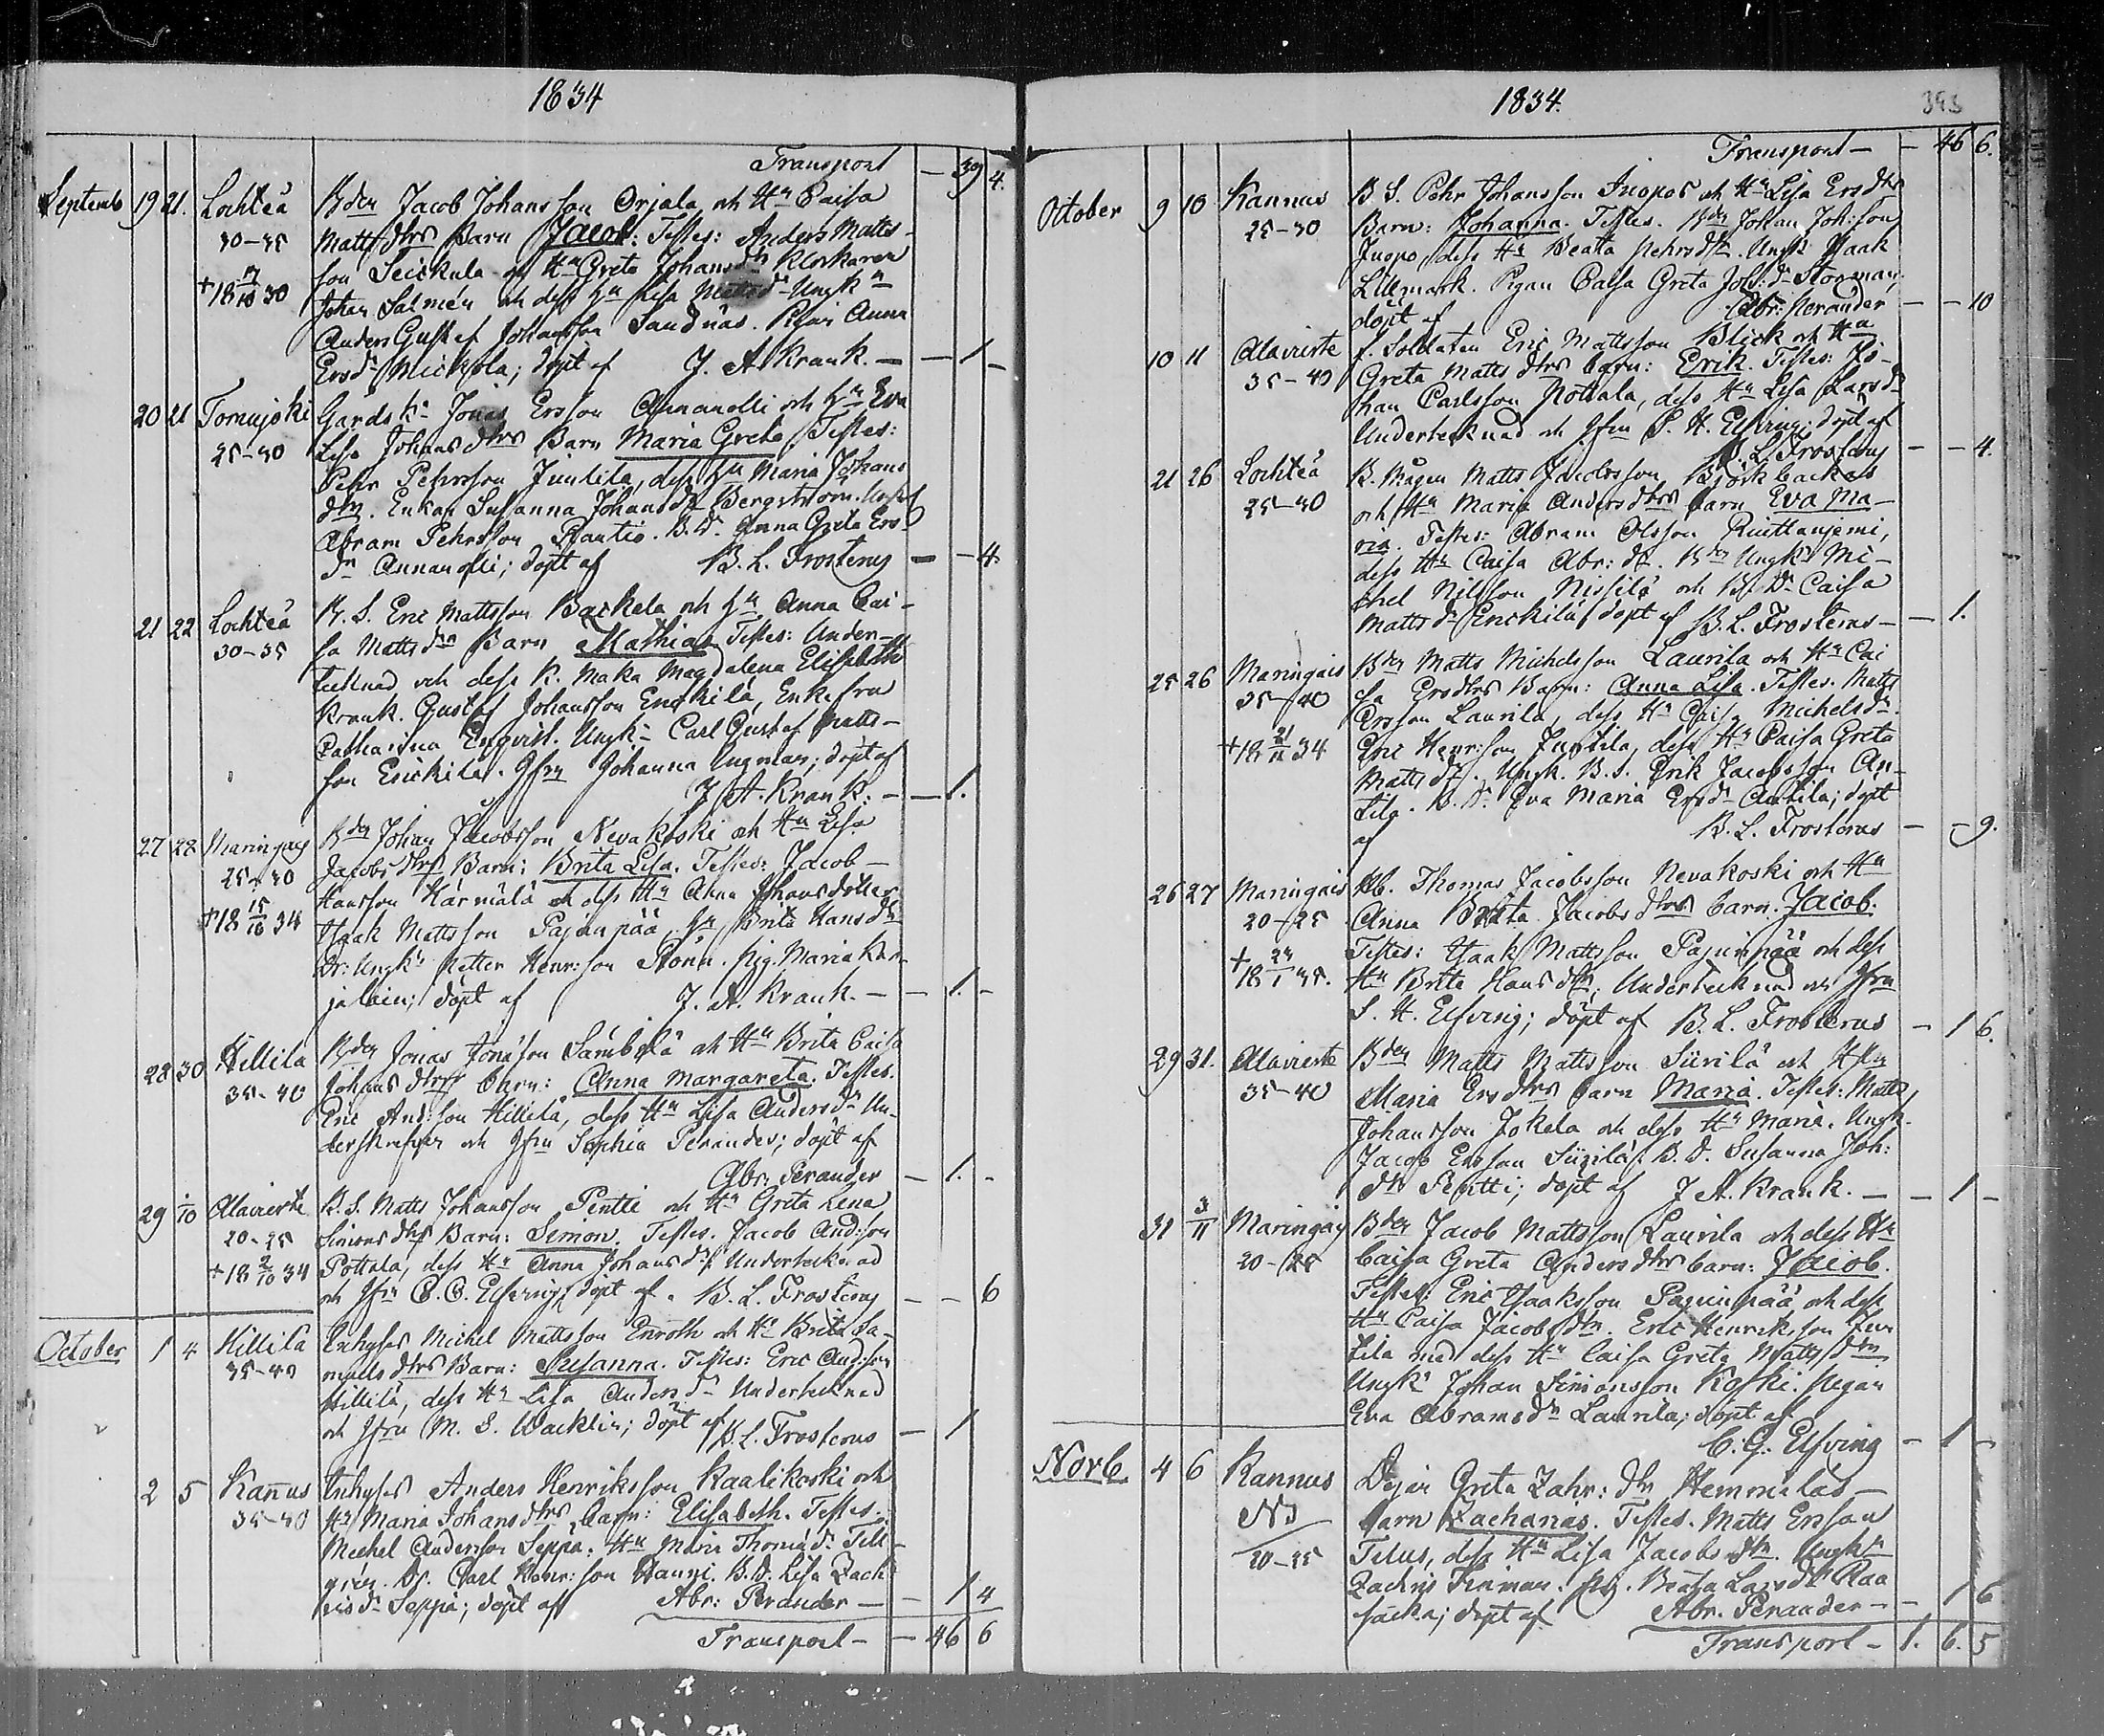 1834
Transport — 39 4.
Septemb 19 21. Lochteå Bden Jacob Johansson Orjala och Hu Caisa
30–35 Matts dtrs Barn Jacob. Testes: Anders Matts-
son Seickula och Hu Greta Johansdr Klockaren
+18 17/10 30 Johan Salmén och dess hu Lisa Mattsdr Ungkn
Anders Gustaf Johansson Sandnäs. Pigan Anna
Ersdr Mickola; döpt af J. A. Krank. — — 1 –
20 21 Tomujoki Gardsk. Jonas Ersson Annanolli och hu Eva
25–30 Lisa Johans dtrs Barn Maria Greta. Testes:
Pehr Pehrsson Juntila, dess hu Maria Johans
dtn. Enkan Susanna Johansdr Bergström.
Abram Pehrsson Rautio. B.D. Anna Greta Ers
dn Annanolli; döpt af B. L. Frosterus — – 4.
21 22 Lochteå B. S. Eric Mattsson Backela och hu Anna Cai-
30–35 sa Matts dtrs Barn Mathias. Testes: Under-
tecknad och dess k. Maka Magdalena Elisabeth
Krank. Gustaf Johansson Enckilä, Enkefru
Catharina Enqvist. Ungk. Carl Gustaf Matts-
son Enckilä. Jfru Johanna Ingman; döpt af
J. A. Krank. — — 1.
27 28 Maringais Bden Johan Jacobsson Nevakoski och Hu Lisa
25–30 Jacobs dtrs Barn: Brita Lisa. Testes: Jacob
Hansson Härmälä och dess Hu Anna Johansdotter
+18 15/10 34 Isaak Mattsson Pajunpää, hu Brita Hansdr
Dr: Ungkn Petter Henr:son Pöönä. Pig. Maria Kar-
jalain; döpt af J. A. Krank. — — 1. –
28 30 Hillilä Bden Jonas Jonasson Sämbelä och Hu Brita Caisa
35–40 Johans dtrs barn: Anna Margareta. Testes.
Eric And:son Hillilä, dess Hu Lisa Andersdr Un-
derskrefven och Jfru Sophia Perander; döpt af
Abr: Perander — 1. –
29 1/10 Alavieste B. S. Matts Johansson Pentti och Hu Greta Lena
20–25 Simons dtrs Barn: Simon. Testes. Jacob And:son
+18 2/10 34 Pottala, dess Hu Anna Johansdr Undertecknad
och Jfru C. C. Elfving, döpt af B. L. Frosterus — — 6
October 1 4 Hillilä Inhyses Michel Mattsson Enroth och Hu Brita Sa-
35–40 muels dtrs Barn: Susanna. Testes: Eric And:son
Hillilä, dess Hu Lisa Andersdr Undertecknad
och Jfru M. S. Wacklin; döpt af B. L. Frosterus — 1
2 5 Kannus Inhyses Anders Henriksson Kaalikoski och
35–40 Hu Maria Johans dtrs Barn: Elisabeth. Testes.
Michel Andersson Seppä. Hu Maria Thomædr Tell
grén. Dr. Carl Henr:son Hanni. B. D. Lisa Zach
risdr Seppä; döpt af Abr: Perander — — 1 4
Transport — — 46 6
1834. 393
Transport — — 46 6.
October 9 10 Kannus B. S. Pehr Johansson Juopos och Hu Lisa Ersdtrs
25–30 Barn: Johanna. Testes. Bden Johan Joh:son
Juopo, dess Hu Beata Pehrsdtr. Ungk. Isaak
Lillmark. Pigan Caisa Greta Johs:dr Storman;
döpt af Abr: Perander — – 10
10 11 Alavieste f. Soldaten Eric Mattsson Blick och Hu
35–40 Greta Matts dtrs barn: Erik. Testes: Jo-
han Carlsson Pottala, dess Hu Lisa Larsdr
Undertecknad och Jfru S. H. Elfving; döpt af
B. L. Frosterus — – 4.
21 26 Lochteå B. Mågen Matts Jacobsson Björkbacka
25–30 och Hu Maria Anders dtrs barn Eva Ma-
ria. Testes: Abram Olsson Ruittaniemi,
dess Hu Caisa Abr: dr. Bden Ungkn Mi-
chel Nilsson Nissilä och B. D. Caisa
Mattsdr Enckilä; döpt af B. L. Frosterus — — 1.
25 26 Maringais Bden Matts Michelsson Laurila och Hu Cai
35–40 sa Ersdtrs Barn: Anna Lisa. Testes. Matts
Ersson Laurila, dess Hu Caisa Michelsdr.
+18 21/11 34 Eric Henr:son Juntila, dess Hu Caisa Greta
Mattsdr. Ungk. B. S. Erik Jacobsson An-
tila. B. D. Eva Maria Ersdr Antila; döpt
af B. L. Frosterus — – 9.
26 27 Maringais Bb. Thomas Jacobsson Nevakoski och Hu
20–25 Anna Brita Jacobs dtrs barn. Jacob.
+ 24 Testes: Isaak Mattsson Pajunpää och dess
18 1 35. Hu Brita Hans dtn, Undertecknad och Jfru
S. H. Elfving; döpt af B. L. Frosterus — 1 6.
29 31. Alavieste Bden Matts Mattsson Siirilä och Hu
35–40 Maria Ersdtrs barn Maria. Testes: Matts
Johansson Jokela och dess Hu Maria. Ungk.
Jacob Ersson Siirilä. B. D. Susanna Joh:
dr Pentti; döpt af J. A. Krank. — — 1 –
31 3/11 Maringais Bden Jacob Mattsson Laurila och dess Hu
20–25 Caisa Greta Anders dtrs barn: Jacob.
Testes: Eric Isaksson Pajunpää och dess
Hu Caisa Jacobs dtn. Eric Henriksson Jun
tila med dess Hu Caisa Greta Matts dtn
Ungkn Johan Simonsson Koski. Pigan
Eva Abramsdr Laurila; döpt af
C. G. Elfving — 1 –
Novb 4 6 Kannus Pigan Greta Zahr: dtn Hemmiläs
barn Zacharias. Testes. Matts Ersson
20–25 Tilus, dess Hu Lisa Jacobs dtn. Ungkn
Zachris Finiman. Pig. Beata Larsdr Raa
sacka; döpt af Abr. Perander — – 1 6
Transport – 1. 6. 5